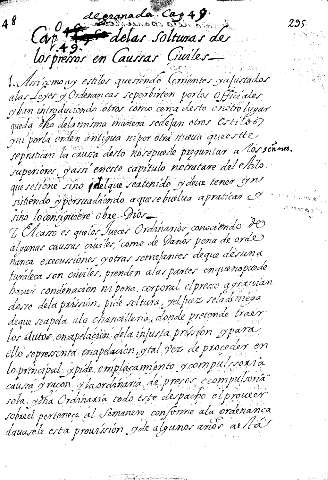 48
de granada. Cap 49.
295
Cap.º 49. de las solturas de
los presos en Caussas Civiles
1. Assi como ay estilos que siendo lexitimos y ajustados
a las Leyes y Ordenanças se pervierten por los officiales
y bien introduciendo otros como consta desto en otro lugar
queda dho de la misma manera se dejan otros
ni por la orden antigua ni por otra nueva que se
la causa desto no se puede preguntar a los señores
superiores, y assi en este capitulo no tratare del estilo
que se tiene sino del que se a tenido y deve tener ynsistiendo
y persuadiendo a que se buelva a praticar y
sino lo consiguiere obre Dios
2. El caso es que los Jueces Ordinarios conosciendo de
algunas caussas civiles, como de Daños pena de ordenança
execuciones y otras semejantes de que de su naturaleza
son civiles, prenden a las partes en que no puede
haver condenacion ni pena, corporal el preso agraviandose
de la prission, pide soltura, y el juez se la deniega
de que se apela a la chancilleria, donde pretende traer
los Autos, en apelacion de la injusta prission, y para
ello se presenta en apelacion, y tal vez de proceder en
lo principal y pide, emplaçamiento y compulssoria
causa y raçon y la ordinaria, de presos, e compulsoria
sola, y dha Ordinaria todo este despacho al proveer
sobre el pertenece al semanero conforme a la ordenança
aunque esta provission, y de algunos años, a